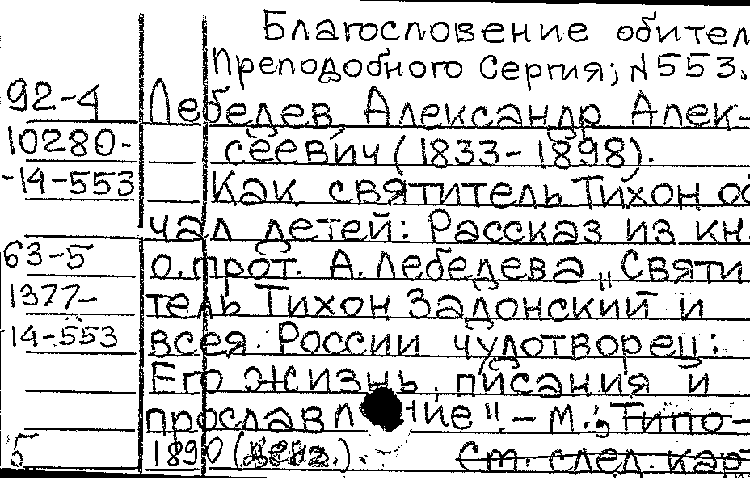 Благословение обител
Преподобного Сергия; N553.
92-4
Лебедев, Александр Алек-
10280-
сеевич (1833-1898).
-14-553
Как святитель Тихон об
чал детей: Рассказ из кн.
63-5
о. прот. А. Лебедева „Святи
1377-
тель Тихон Задонский и
14-553
всея России чудотворец:
Его жизнь, писания и
прославл ние". - М.: Типо-
5
1890 (ценз.).
См. след. кар